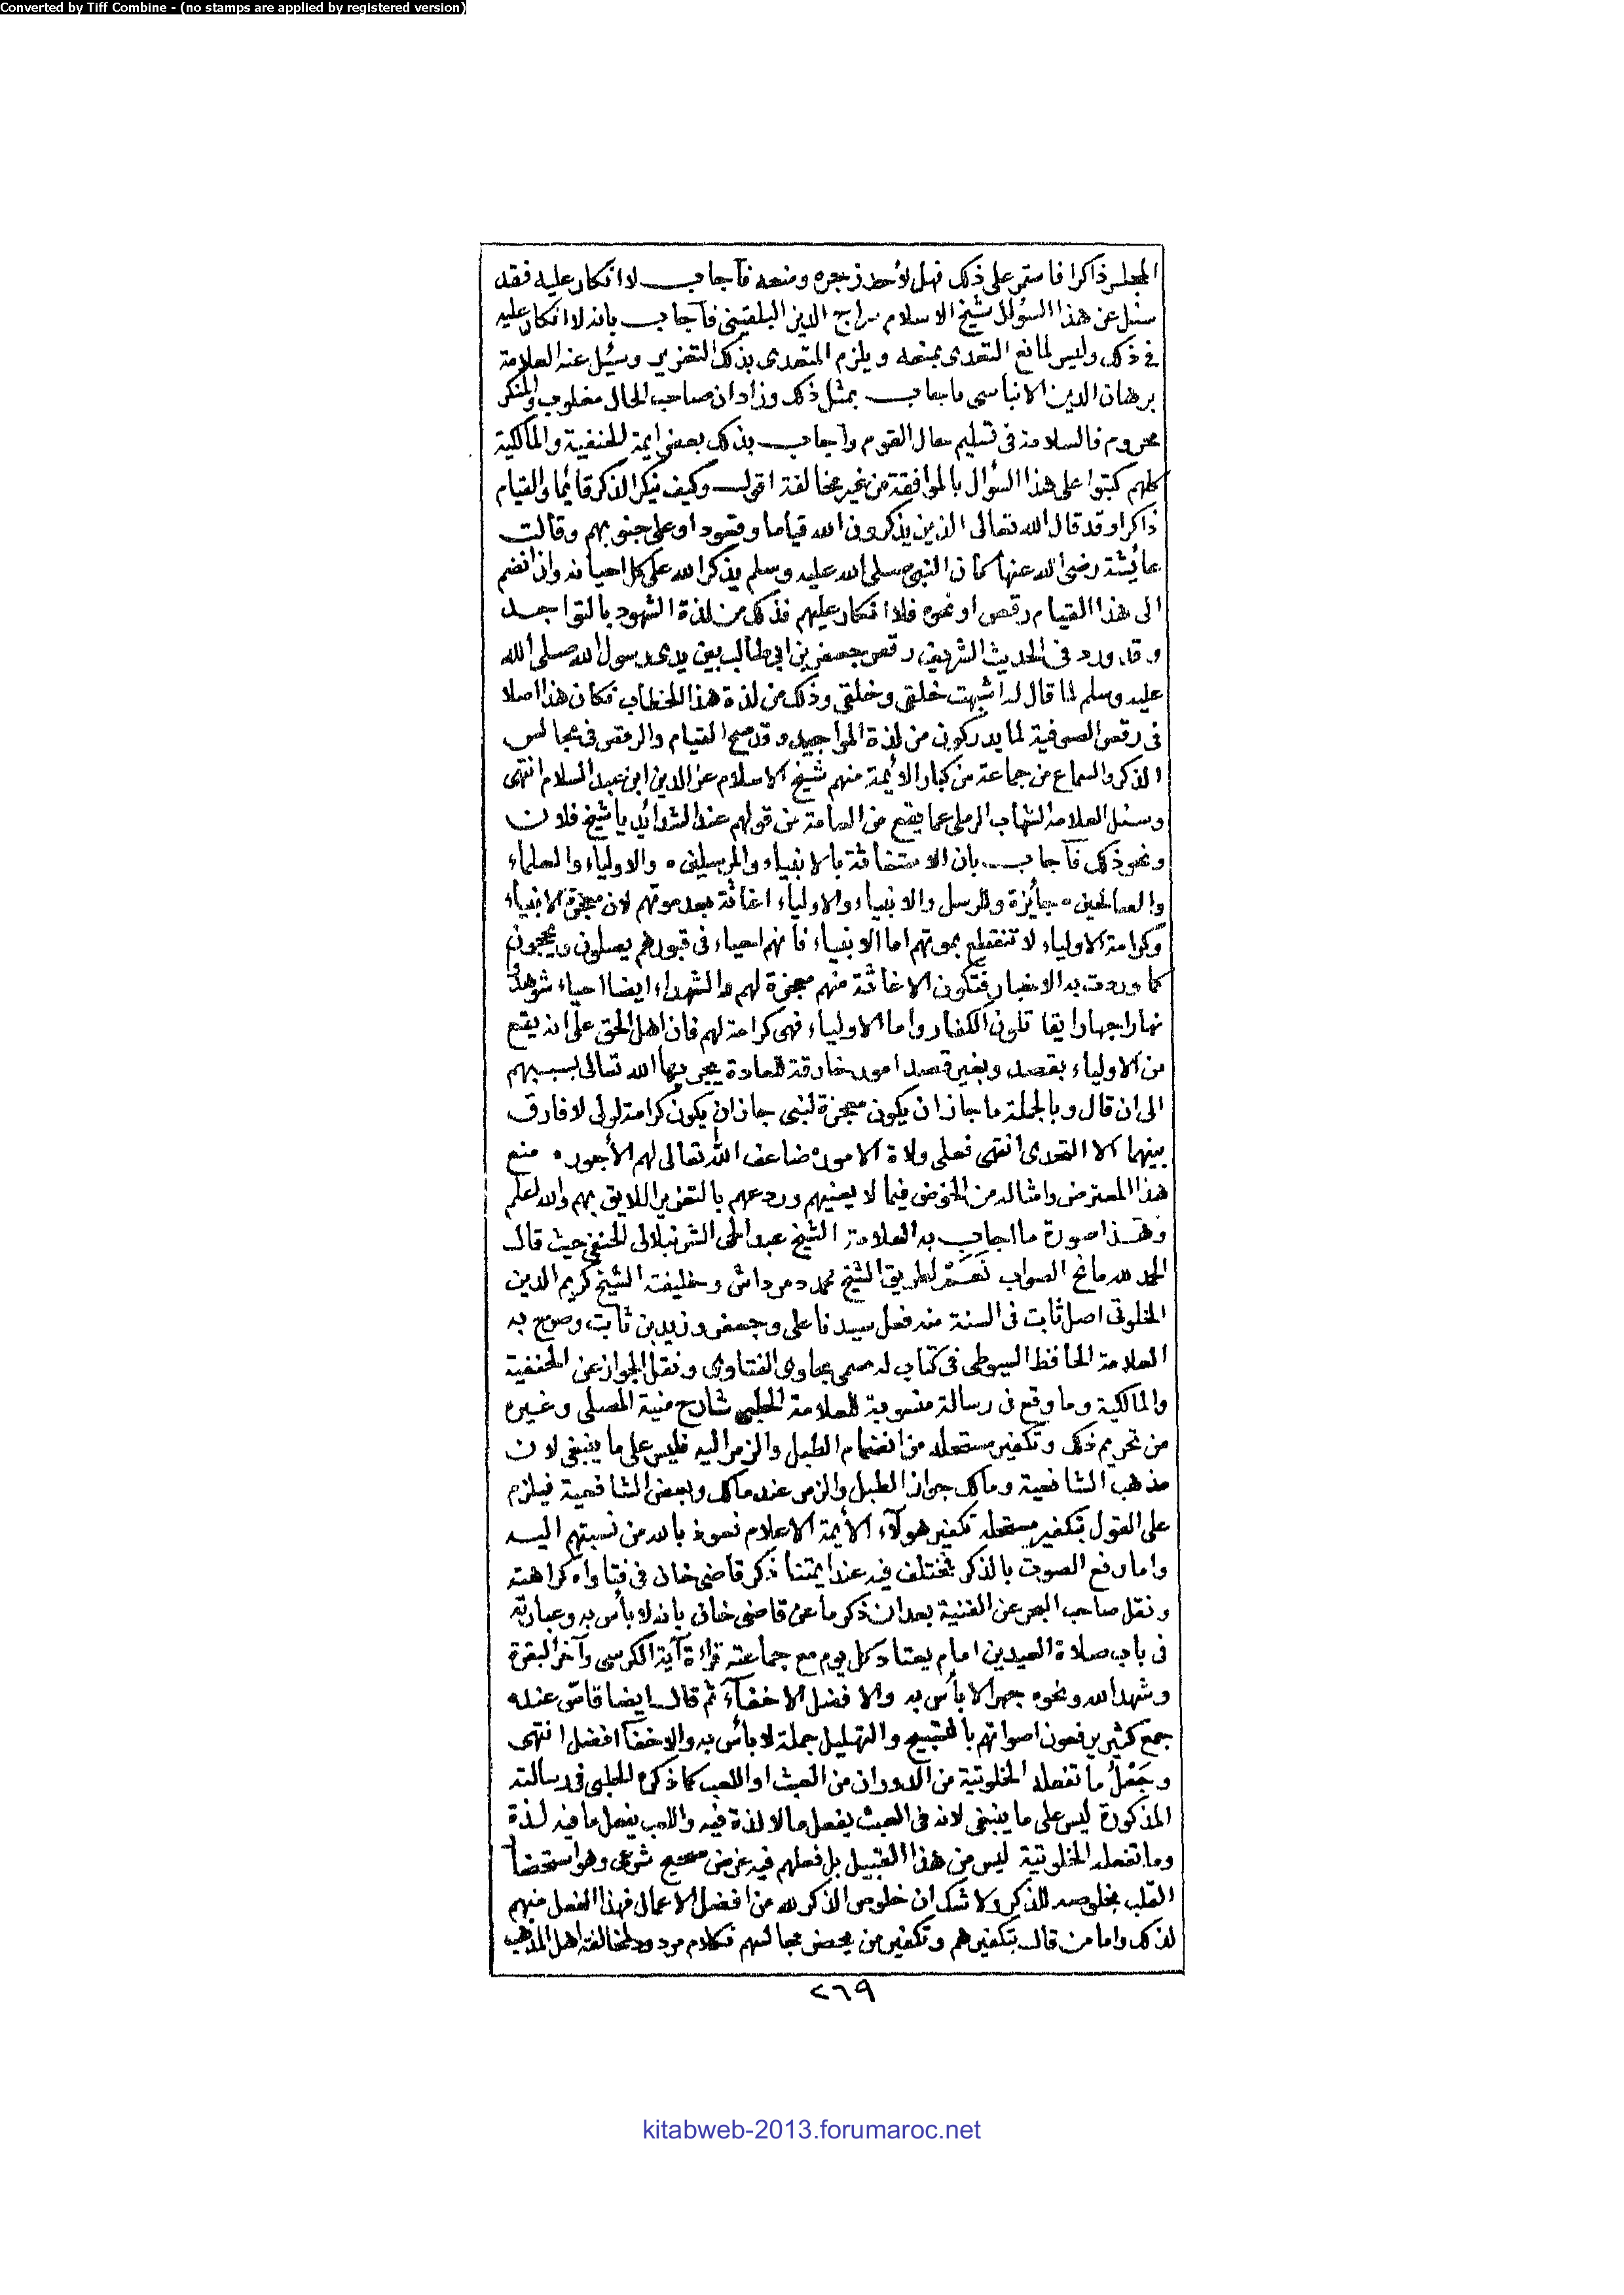 Converted by Tiff Combine - (no stamps are applied by registered version)
المجلس ذاكرا فاستمر على ذلك فهل لأحد زجره ومنعه فأجاب لا انكار عليه فقد
سئل عن هذا السؤال شيخ الاسلام سراج الدين البلقينى فأجاب بانه لا انكار عليه
فى ذلك وليس لمانع التعدى بمنعه ويلزم المتعدى بذلك التعزير وسئل عنه العلامة
برهان الدين الانباسى فاجاب بمثل ذلك وزاد ان صاحب الحال مغلوب والمنكر
محروم فالسلامة فى تسليم حال القوم وأجاب بذلك بعض ايمة الحنفية والمالكية
كلهم كتبوا على هذا السؤال بالموافقة من غير مخالفة اقول وكيف ينكر الذكر قائما والقيام
ذاكرا وقد قال الله تعالى الذين يذكرون الله قياما وقعودا وعلى جنوبهم وقالت
عائشة رضى الله عنها كان النبى صلى الله عليه وسلم يذكر الله على كل احيانه وان انضم
الى هذا القيام رقص او نحوه فلا انكار عليهم فذلك من لذة الشهود بالتواجد
وقد ورد فى الحديث الشريف رقص جعفر بن ابى طالب بين يدى رسول الله صلى الله
عليه وسلم لما قال له اشبهت خلقى وخلقى وذلك من لذة هذا الخطاب فكان هذا اصلا
فى رقص الصوفية لما يدركون من لذة المواجيد وقد صح القيام والرقص فى مجالس
الذكر والسماع من جماعة من كبار الأيمة منهم شيخ الاسلام عز الدين ابن عبد السلام انتهى
وسئل العلامة الشهاب الرملى عما يقع من العامة من قولهم عند الشدائد يا شيخ فلان
ونحو ذلك فأجاب بان الاستغاثة بالانبياء والمرسلين ه والاولياء والعلماء
والصالحين ه جائزة وللرسل والانبياء والاولياء اغاثة بعد موتهم لان معجزة الانبياء
وكرامة الاولياء لا تنقطع بموتهم اما الانبياء فانهم احياء فى قبورهم يصلون ويحجون
كما وردت به الاخبار فتكون الاغاثة منهم معجزة لهم والشهداء ايضا احياء شوهدوا
نهارا جهارا يقاتلون الكفار واما الاولياء فهى كرامة لهم فان اهل الحق على انه يقع
من الاولياء بقصد وبغير قصد امور خارقة للعادة يجريها الله تعالى بسببهم
الى ان قال وبالجملة ما جاز ان يكون معجزة لنبى جاز ان يكون كرامة لولى لا فارق
بينهما الا التحدى انتهى فعلى ولاة الامور ه ضاعف الله تعالى لهم الأجور ه منع
هذا المعترض وامثاله من الخوض فيما لا يعنيهم وردعهم بالتعزير اللايق بهم والله اعلم
وهذا صورة ما اجاب به العلامة الشيخ عبد الحى الشرنبلالى الحنفى حيث قال
الحمد لله مانح الصواب نعم لطريق الشيخ محمد دمرداش وخليفته الشيخ كريم الدين
الخلوتى اصل ثابت فى السنة منه فعل سيدنا على وجعفر وزيد بن ثابت وصرح به
العلامة الحافظ السيوطى فى كتاب له مسمى بحاوى الفتاوى ونقل الجواز عن الحنفية
والمالكية وما وقع فى رسالة منسوبة للعلامة الحلبى شارح منية المصلى وغيره
من تحريم ذلك وتكفير مستحله من انضمام الطبل والزمر اليه فليس على ما ينبغى لان
مذهب الشافعية ومالك جواز الطبل والزمر عند مالك وبعض الشافعية فيلزم
على القول بتكفير مستحله تكفير هولآء الأيمة الاعلام نعوذ بالله من نسبتهم اليه
واما رفع الصوت بالذكر فمختلف فيه عند ايمتنا ذكر قاضى خان فى فتاواه كراهته
ونقل صاحب البحر عن القنية بعد ان ذكر ما عن قاضى خان بانه لا بأس به وعبارته
فى باب صلاة العيدين امام يعتاد كل يوم مع جماعته قراءة آية الكرسى وآخر البقرة
وشهد الله ونحوه جهرا لا بأس به والافضل الاخفآء ثم قال ايضا قاض عنده
جمع كثير يرفعون اصواتهم بالتسبيح والتهليل جملة لا بأس به والاخفا افضل انتهى
وجعل ما تفعله الخلوتية من الدوران من العبث او اللعب كما ذكره الحلبى فى رسالته
المذكورة ليس على ما ينبغى لانه فى العبث يفعل ما لا لذة فيه واللعب يفعل ما فيه لذة
وما تفعله الخلوتية ليس من هذا القبيل بل فعلهم فيه غرض صحيح شرعى وهو استحضار
القلب بخلوصه للذكر ولا شك ان خلوص الذكر لله من افضل الاعمال فهذا الفعل منهم
لذلك واما من قال بتكفيرهم وتكفير من يحضر مجالسهم فكلام مردود لمخالفته اهل المذهب
٢٦٩
kitabweb-2013.forumaroc.net